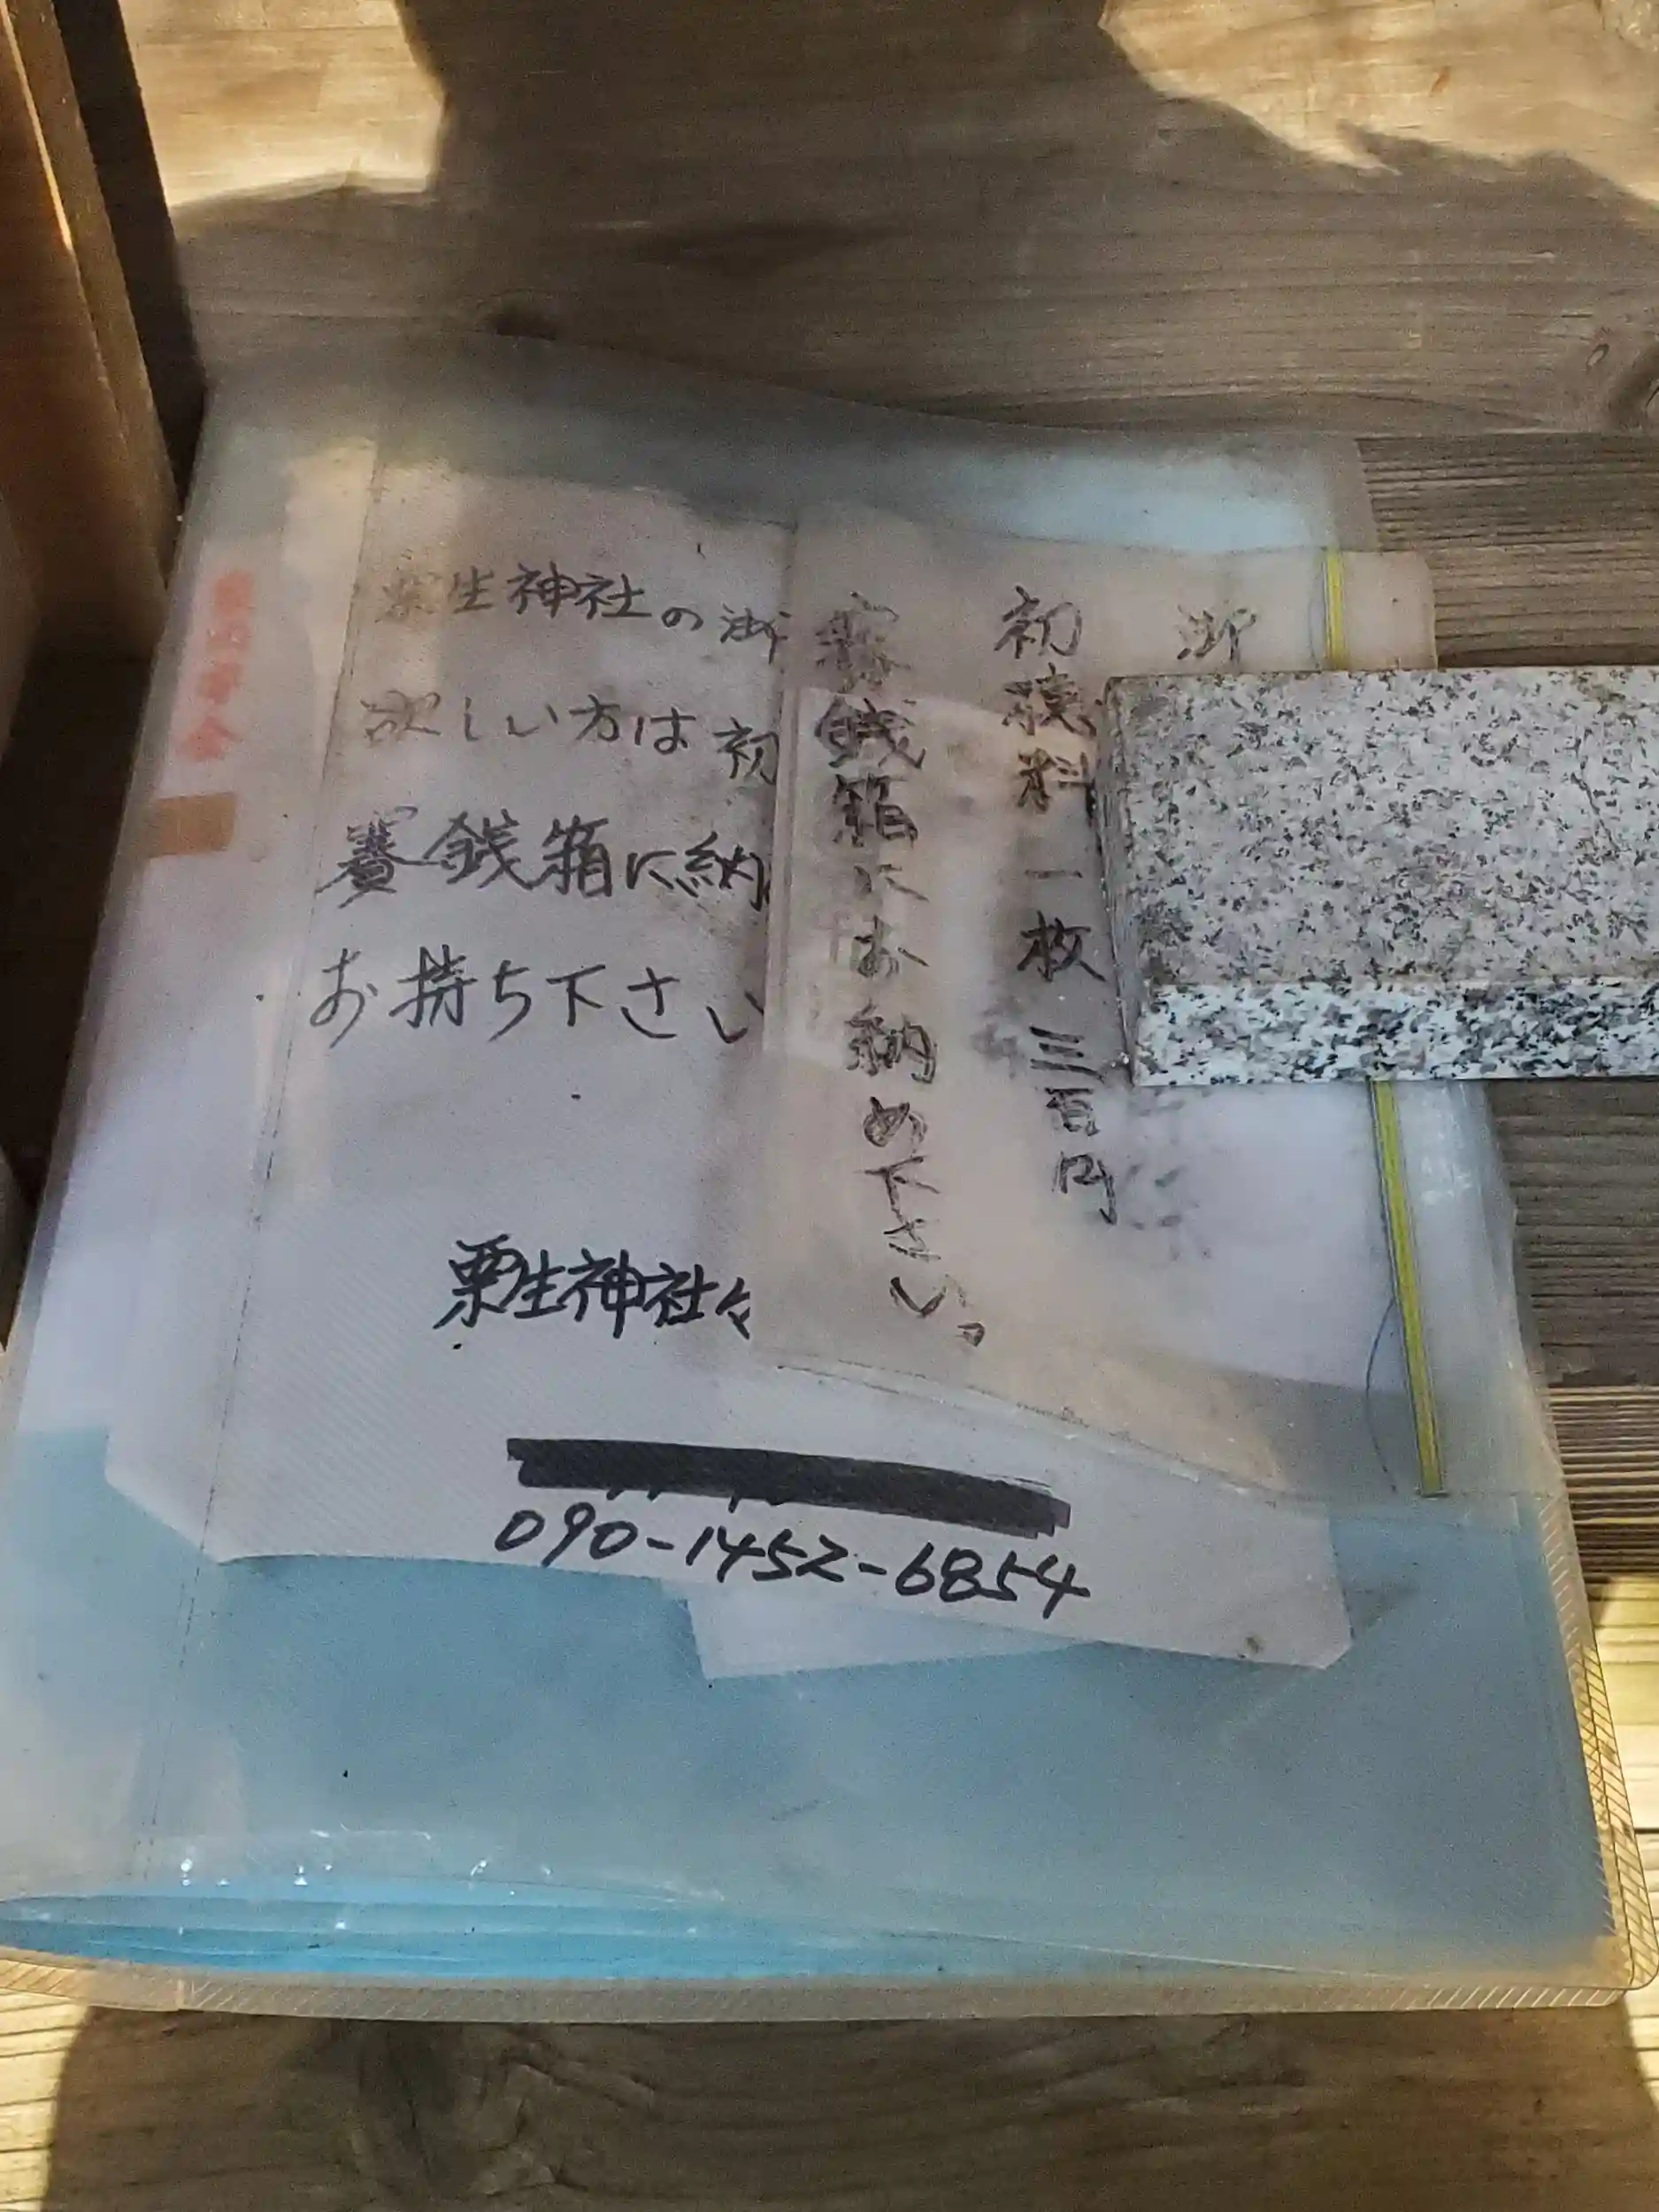 御
初穂料一枚三百円
賽銭箱にお納め下さい。
粟生神社の御
欲しい方は初
賽銭箱に納
お持ち下さい
粟生神社々
090-1452-6854